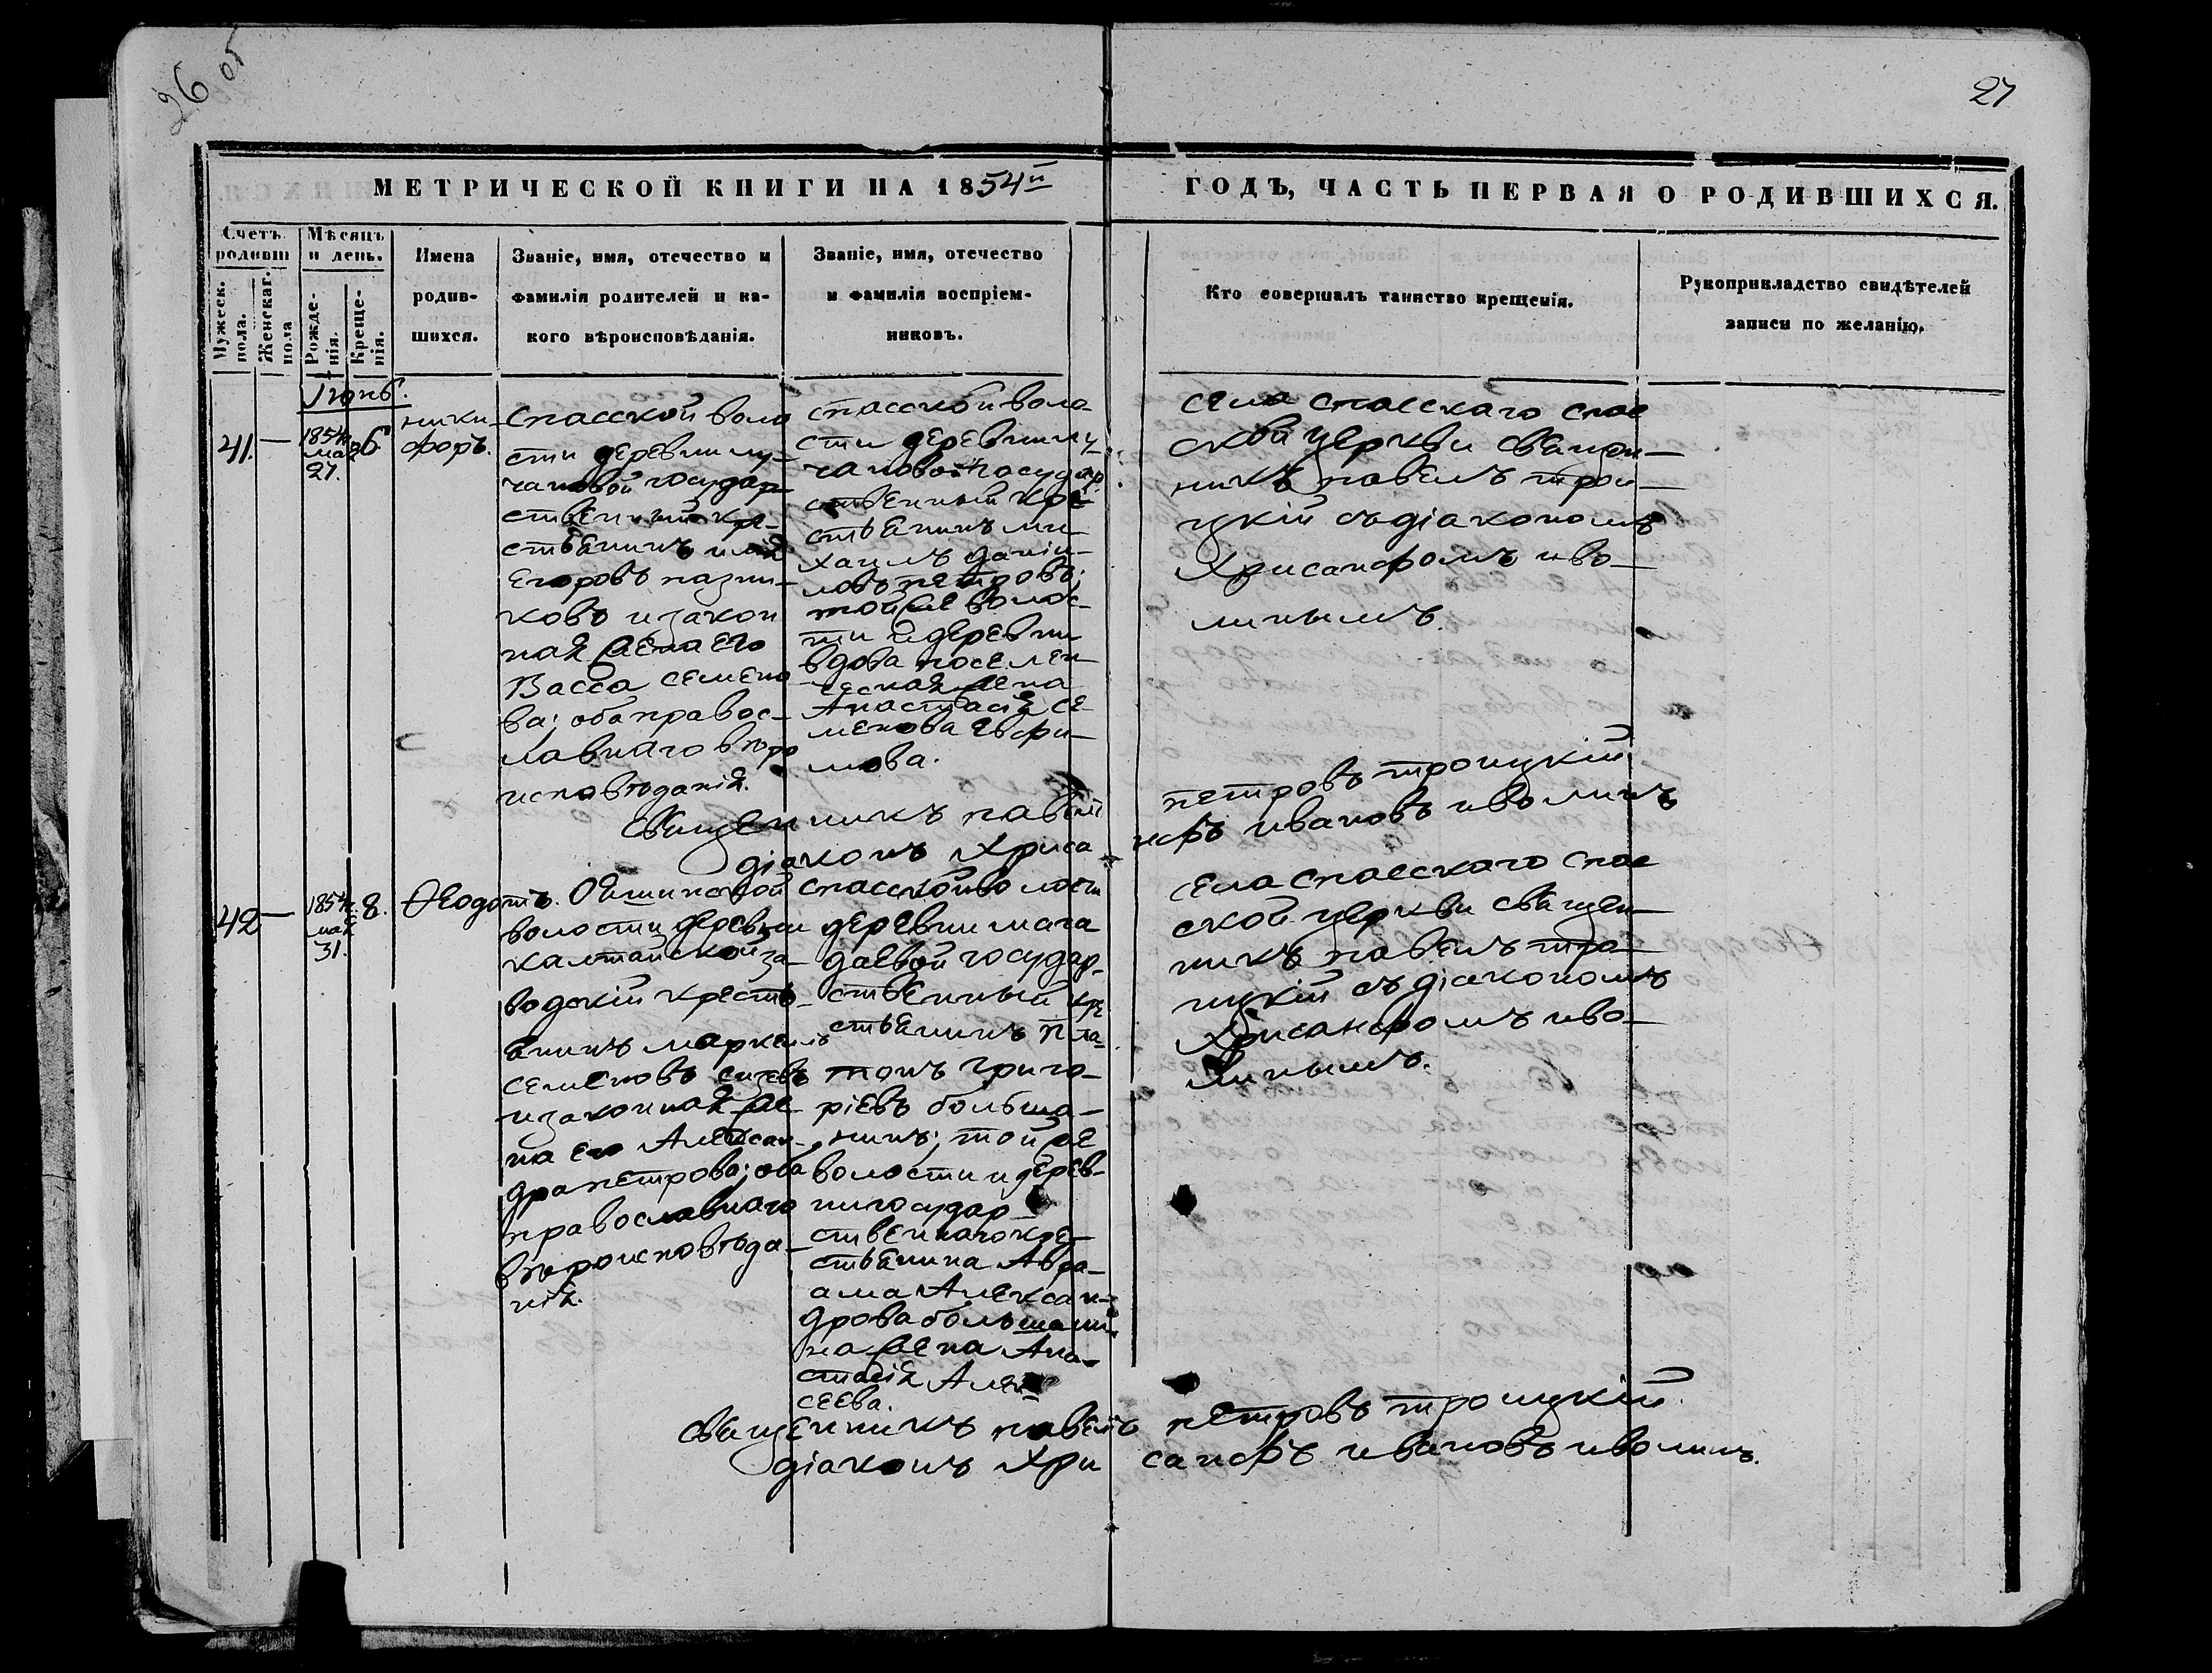 26 об
27
МЕТРИЧЕСКОЙ КНИГИ НА 1854й
ГОДЪ, ЧАСТЬ ПЕРВАЯ О РОДИВШИХСЯ.
Счетъ родивш
Мужеск. пола.
Женскаг. пола
Мѣсяцъ и день.
Рожде-нія.
Креще-нія.
Имена
родив-
шихся.
Званіе, имя, отечество и
фамилія родителей и ка-
кого вѣроисповѣданія.
Званіе, имя, отечество
и фамилія воспріем-
никовъ.
Кто совершалъ таинство крещенія.
Рукоприкладство свидѣтелей
записи по желанію.
41. —
1854
мая
27.
6.
ники-
форъ.
спасской воло
сти деревни лу-
чановой государ-
ственный кре-
стьянинъ илія
Егоровъ
ковъ и закон
ная жена его
Васса семено
ва; оба правос-
лавнаго вѣро
исповѣданія.
спасской воло-
сти деревни лу-
чановой государ
ственный кре-
стьянинъ ми-
хаилъ даніи-
ловъ петровъ;
той же волос-
ти и деревни
вдова поселен-
ческая жена
Анастасія се-
менова Ефи-
мова.
села спасскаго спас
ской церкви священ-
никъ павелъ трои-
цкій съ діакономъ
Хрисанфомъ иво-
линымъ.
священникъ павелъ петровъ троицкій
діаконъ Хрисанфъ ивановъ иволинъ
42 —
1854.
мая
31.
8.
Ѳеодотъ.
волости деревни
калтайской за-
водскій кресть-
янинъ маркелъ
семеновъ
и законная же-
на его Алексан-
дра петрова; оба
православнаго
вѣроисповѣда-
нія.
спасской волости
деревни мага
даевой государ-
ственный кре
стьянинъ Пла-
тонъ григо-
ріевъ больша-
нинъ; той же
волости и дерев-
ни государ-
ственнаго кре-
стьянина Авра-
ама Алексан-
дрова большани-
на жена Ана-
стасія Алек
сеева.
села спасскаго спас
ской церкви священ-
никъ павелъ тро-
ицкій съ діакономъ
Хрисанфомъ иво-
линымъ.
священникъ павелъ петровъ троицкій.
діаконъ Хрисанфъ ивановъ иволинъ.